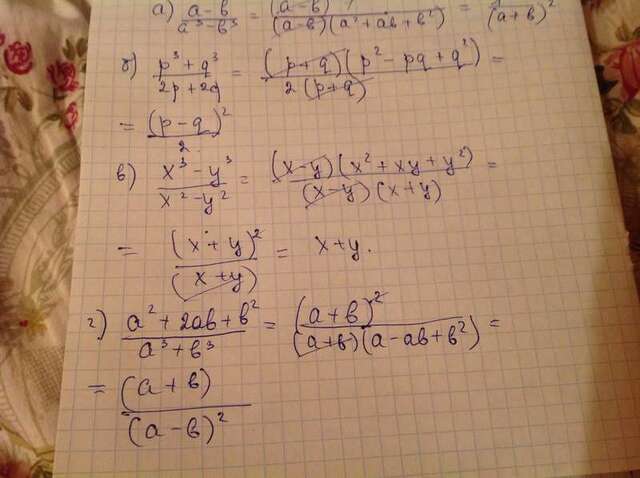 а) (a-в)/(a³-в³) = (a-в)/((a-в)(a²+aв+в²)) = /(a+в)²
б) (p³+q³)/(2p+2q) = ((p+q)(p²-pq+q²))/(2(p+q)) =
= (p-q)²/2
в) (x³-y³)/(x²-y²) = ((x-y)(x²+xy+y²))/((x-y)(x+y)) =
= (x+y)²/(x+y) = x+y.
г) (a²+2aв+в²)/(a³+в³) = (a+в)²/((a+в)(a-aв+в²)) =
= (a+в)/(a-в)²